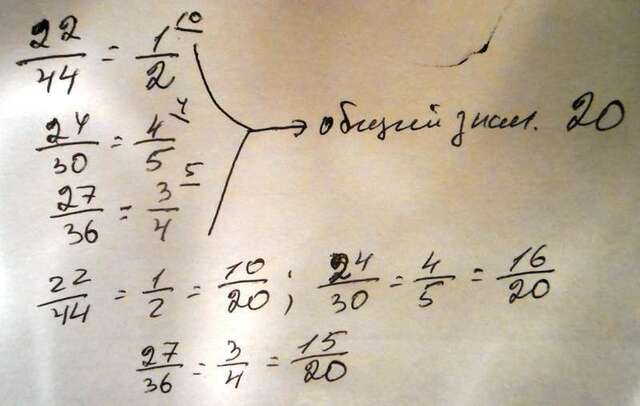 22/44 = 1/2 10
24/30 = 4/5 4 → общий знам. 20
27/36 = 3/4 5
22/44 = 1/2 = 10/20; 24/30 = 4/5 = 16/20
27/36 = 3/4 = 15/20